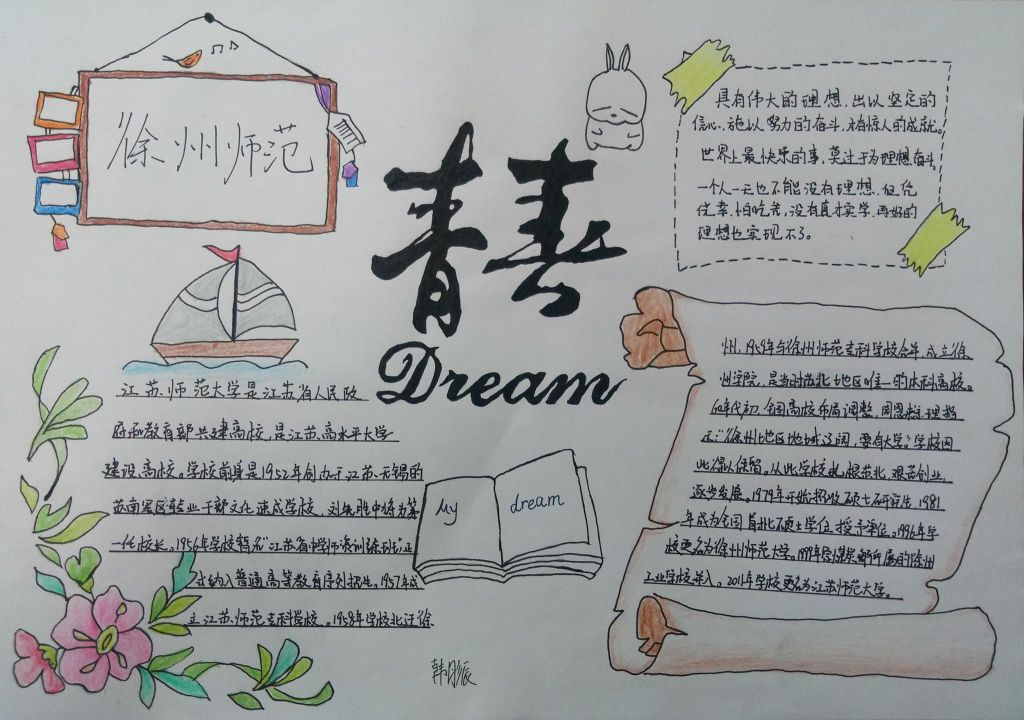 徐州师范
青春
Dream
具有伟大的理想,出以坚定的
信心,施以努力的奋斗,才有惊人的成就。
世界上最快乐的事,莫过于为理想奋斗。
一个人一云也不能没有理想,但凭
侥幸,怕吃苦,没有真才实学,再好的
理想也实现不了。
江苏师范大学是江苏省人民政
府和教育部共建高校,是江苏高水平大学
建设高校。学校前身是1952年创办于江苏无锡的
苏南军区转业干部文化速成学校,刘先胜中将为第
一任校长。1956年学校暂名"江苏省中学师资训练班",正
式纳入普通高等教育序列招生。1957年成
立江苏师范专科学校。1958年学校北迁徐
州,1959年与徐州师范专科学校合并,成立徐
州学院,是当时苏北地区唯一的本科高校。
60年代初,全国高校布局调整,周恩来总理指
示:"徐州地区地域辽阔,要有大学",学校因
此得以保留。从此学校扎根苏北,艰苦创业,
逐步发展。1979年开始招收硕士研究生,1981
年成为全国首批硕士学位授予单位。1996年学
校更名为徐州师范大学。1999年原煤炭部所属的徐州
工业学校并入。2011年学校更名为江苏师范大学。
My dream